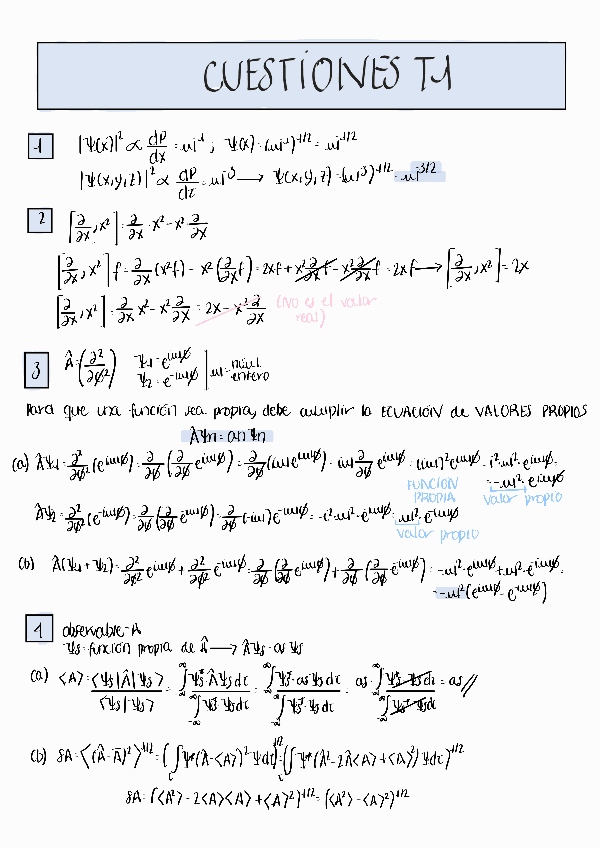 CUESTIONES T1
1 |Ψ(x)|² ∝ dP/dx = m⁻¹ ; Ψ(x) = (m⁻¹)^1/2 = m^-1/2
|Ψ(x,y,z)|² ∝ dP/dz = m⁻³ → Ψ(x,y,z) = (m⁻³)^1/2 = m^-3/2
2 [∂/∂x, x²] = ∂/∂x · x² - x² ∂/∂x
[∂/∂x, x²] f = ∂/∂x (x²f) - x² (∂/∂x f) = 2xf + x² ∂/∂x f - x² ∂/∂x f = 2xf → [∂/∂x, x²] = 2x
[∂/∂x, x²] = ∂/∂x x² - x² ∂/∂x = 2x - x² ∂/∂x (No es el valor real)
3 Â = (∂²/∂φ²) Ψ₁ = e^imφ Ψ₂ = e^-imφ | m = núm. entero
Para que una función sea propia, debe cumplir la ECUACIÓN de VALORES PROPIOS
ÂΨn = anΨn
(a) ÂΨ₁ = ∂²/∂φ² (e^imφ) = ∂/∂φ (∂/∂φ e^imφ) = ∂/∂φ (im e^imφ) = im ∂/∂φ e^imφ = (im)² e^imφ = i²·m²·e^imφ =
= -m²·e^imφ
FUNCIÓN PROPIA valor propio
ÂΨ₂ = ∂²/∂φ² (e^-imφ) = ∂/∂φ (∂/∂φ e^-imφ) = ∂/∂φ (-im) e^-imφ = -i²·m²·e^-imφ = m²·e^-imφ
valor propio
(b) Â(Ψ₁ + Ψ₂) = ∂²/∂φ² e^imφ + ∂²/∂φ² e^-imφ = ∂/∂φ (∂/∂φ e^imφ) + ∂/∂φ (∂/∂φ e^-imφ) = -m²·e^imφ + m²·e^-imφ =
= -m² (e^imφ - e^-imφ)
1 observable = A
Ψs = función propia de Â → ÂΨs = as Ψs
(a) <A> = <Ψs|Â|Ψs> / <Ψs|Ψs> = ∫Ψs* ÂΨs dτ / ∫Ψs* Ψs dτ = ∫Ψs* as Ψs dτ / ∫Ψs* Ψs dτ = as ∫Ψs* Ψs dτ / ∫Ψs* Ψs dτ = as //
(b) δA = <(Â - Ā)²>^1/2 = (∫Ψ* (Â - <A>)² Ψ dτ)^1/2 = (∫Ψ* (² - 2Â<A> + <A>²) Ψ dτ)^1/2
δA = (<A²> - 2<A><A> + <A>²)^1/2 = (<A²> - <A>²)^1/2